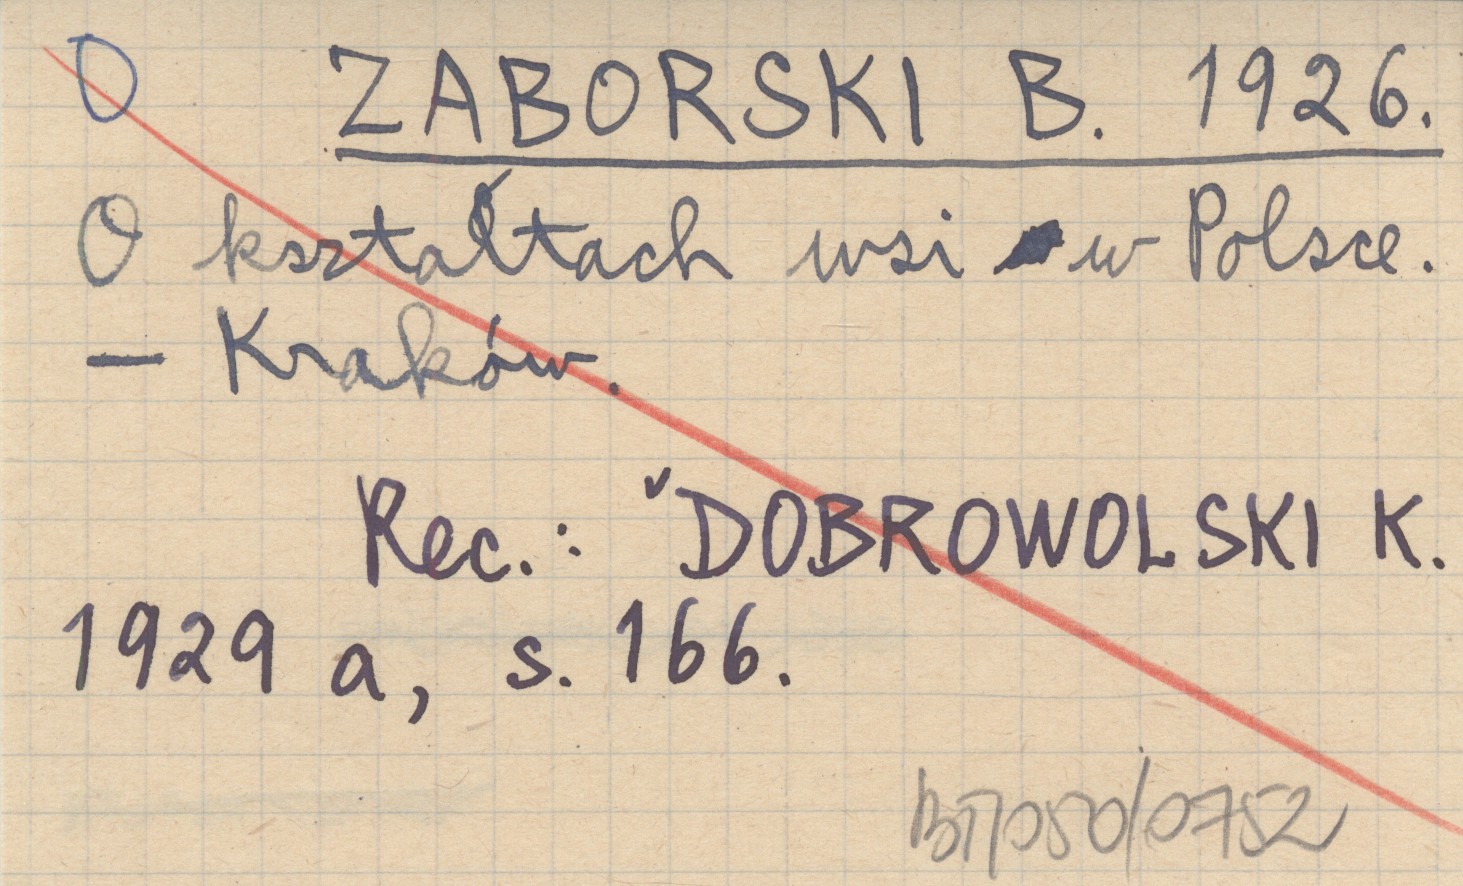 O ZABORSKI B. 1926.
O kształtach wsi w Polsce.
— Kraków.
Rec.: ˇDOBROWOLSKI K.
1929 a, s. 166.
BT/050/0752